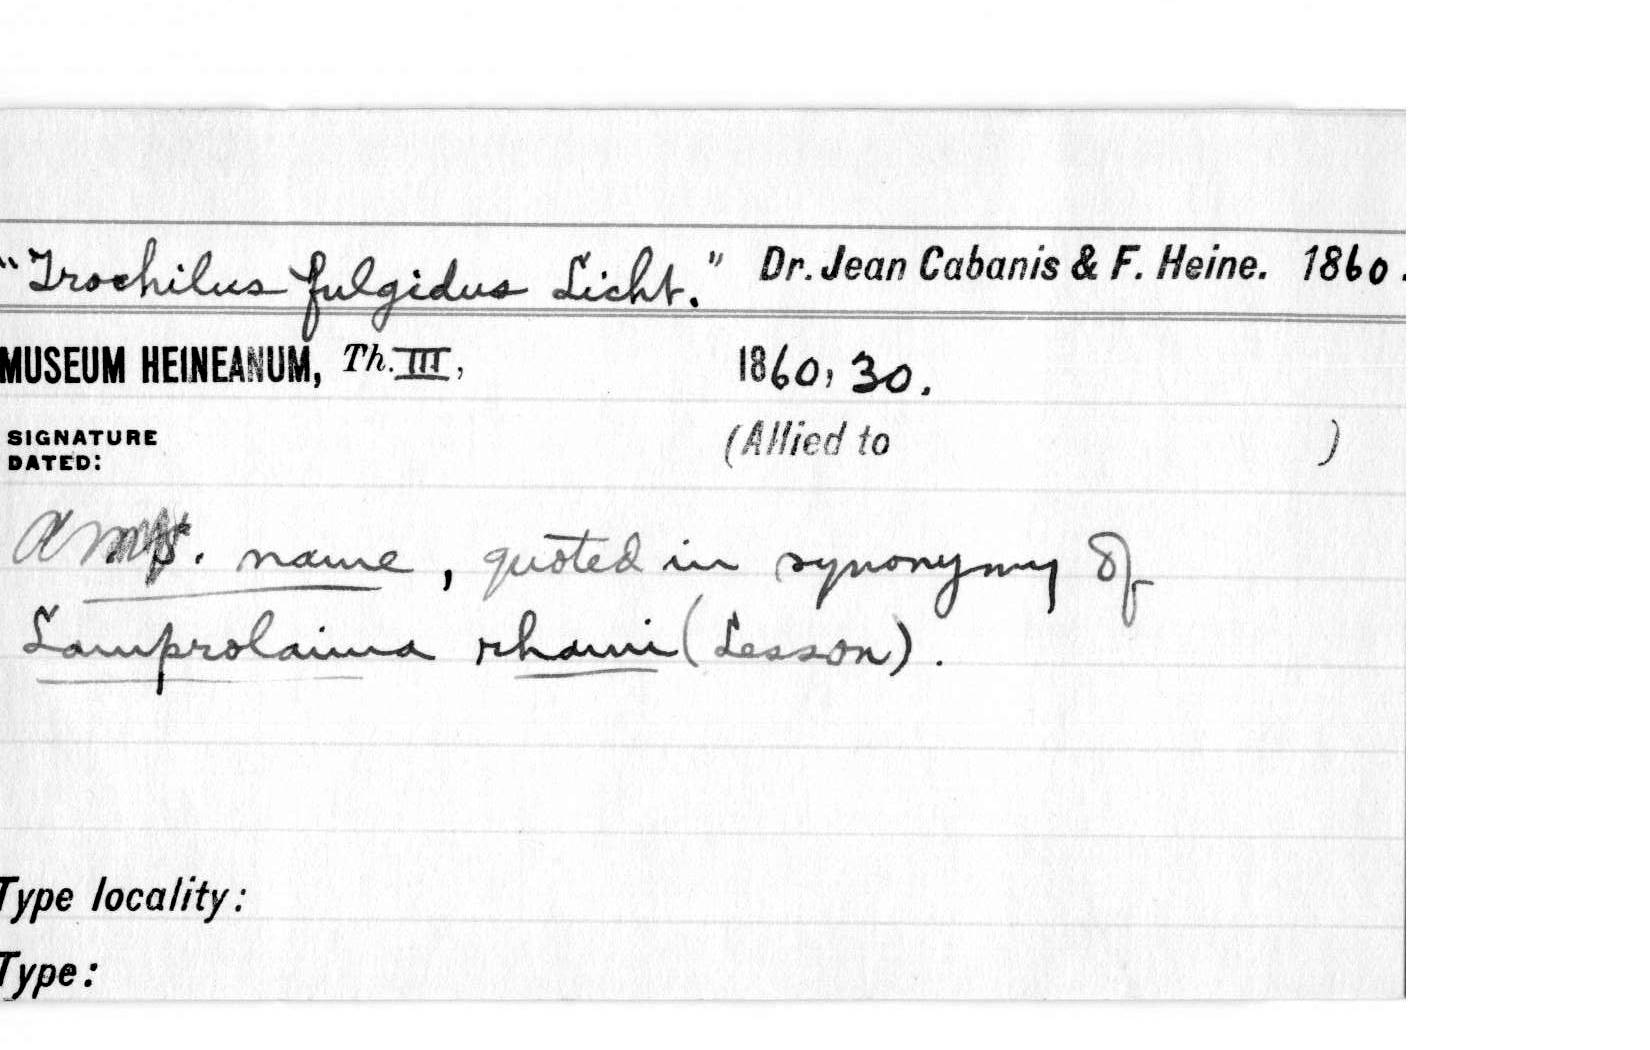 "Trochilus fulgidus Licht." Dr. Jean Cabanis & F. Heine. 1860.
MUSEUM HEINEANUM, Th. III, 1860, 30.
(Allied to )
SIGNATURE
DATED:
A ms. name, quoted in synonymy of
Lamprolaima rhami (Lesson).
Type locality:
Type: